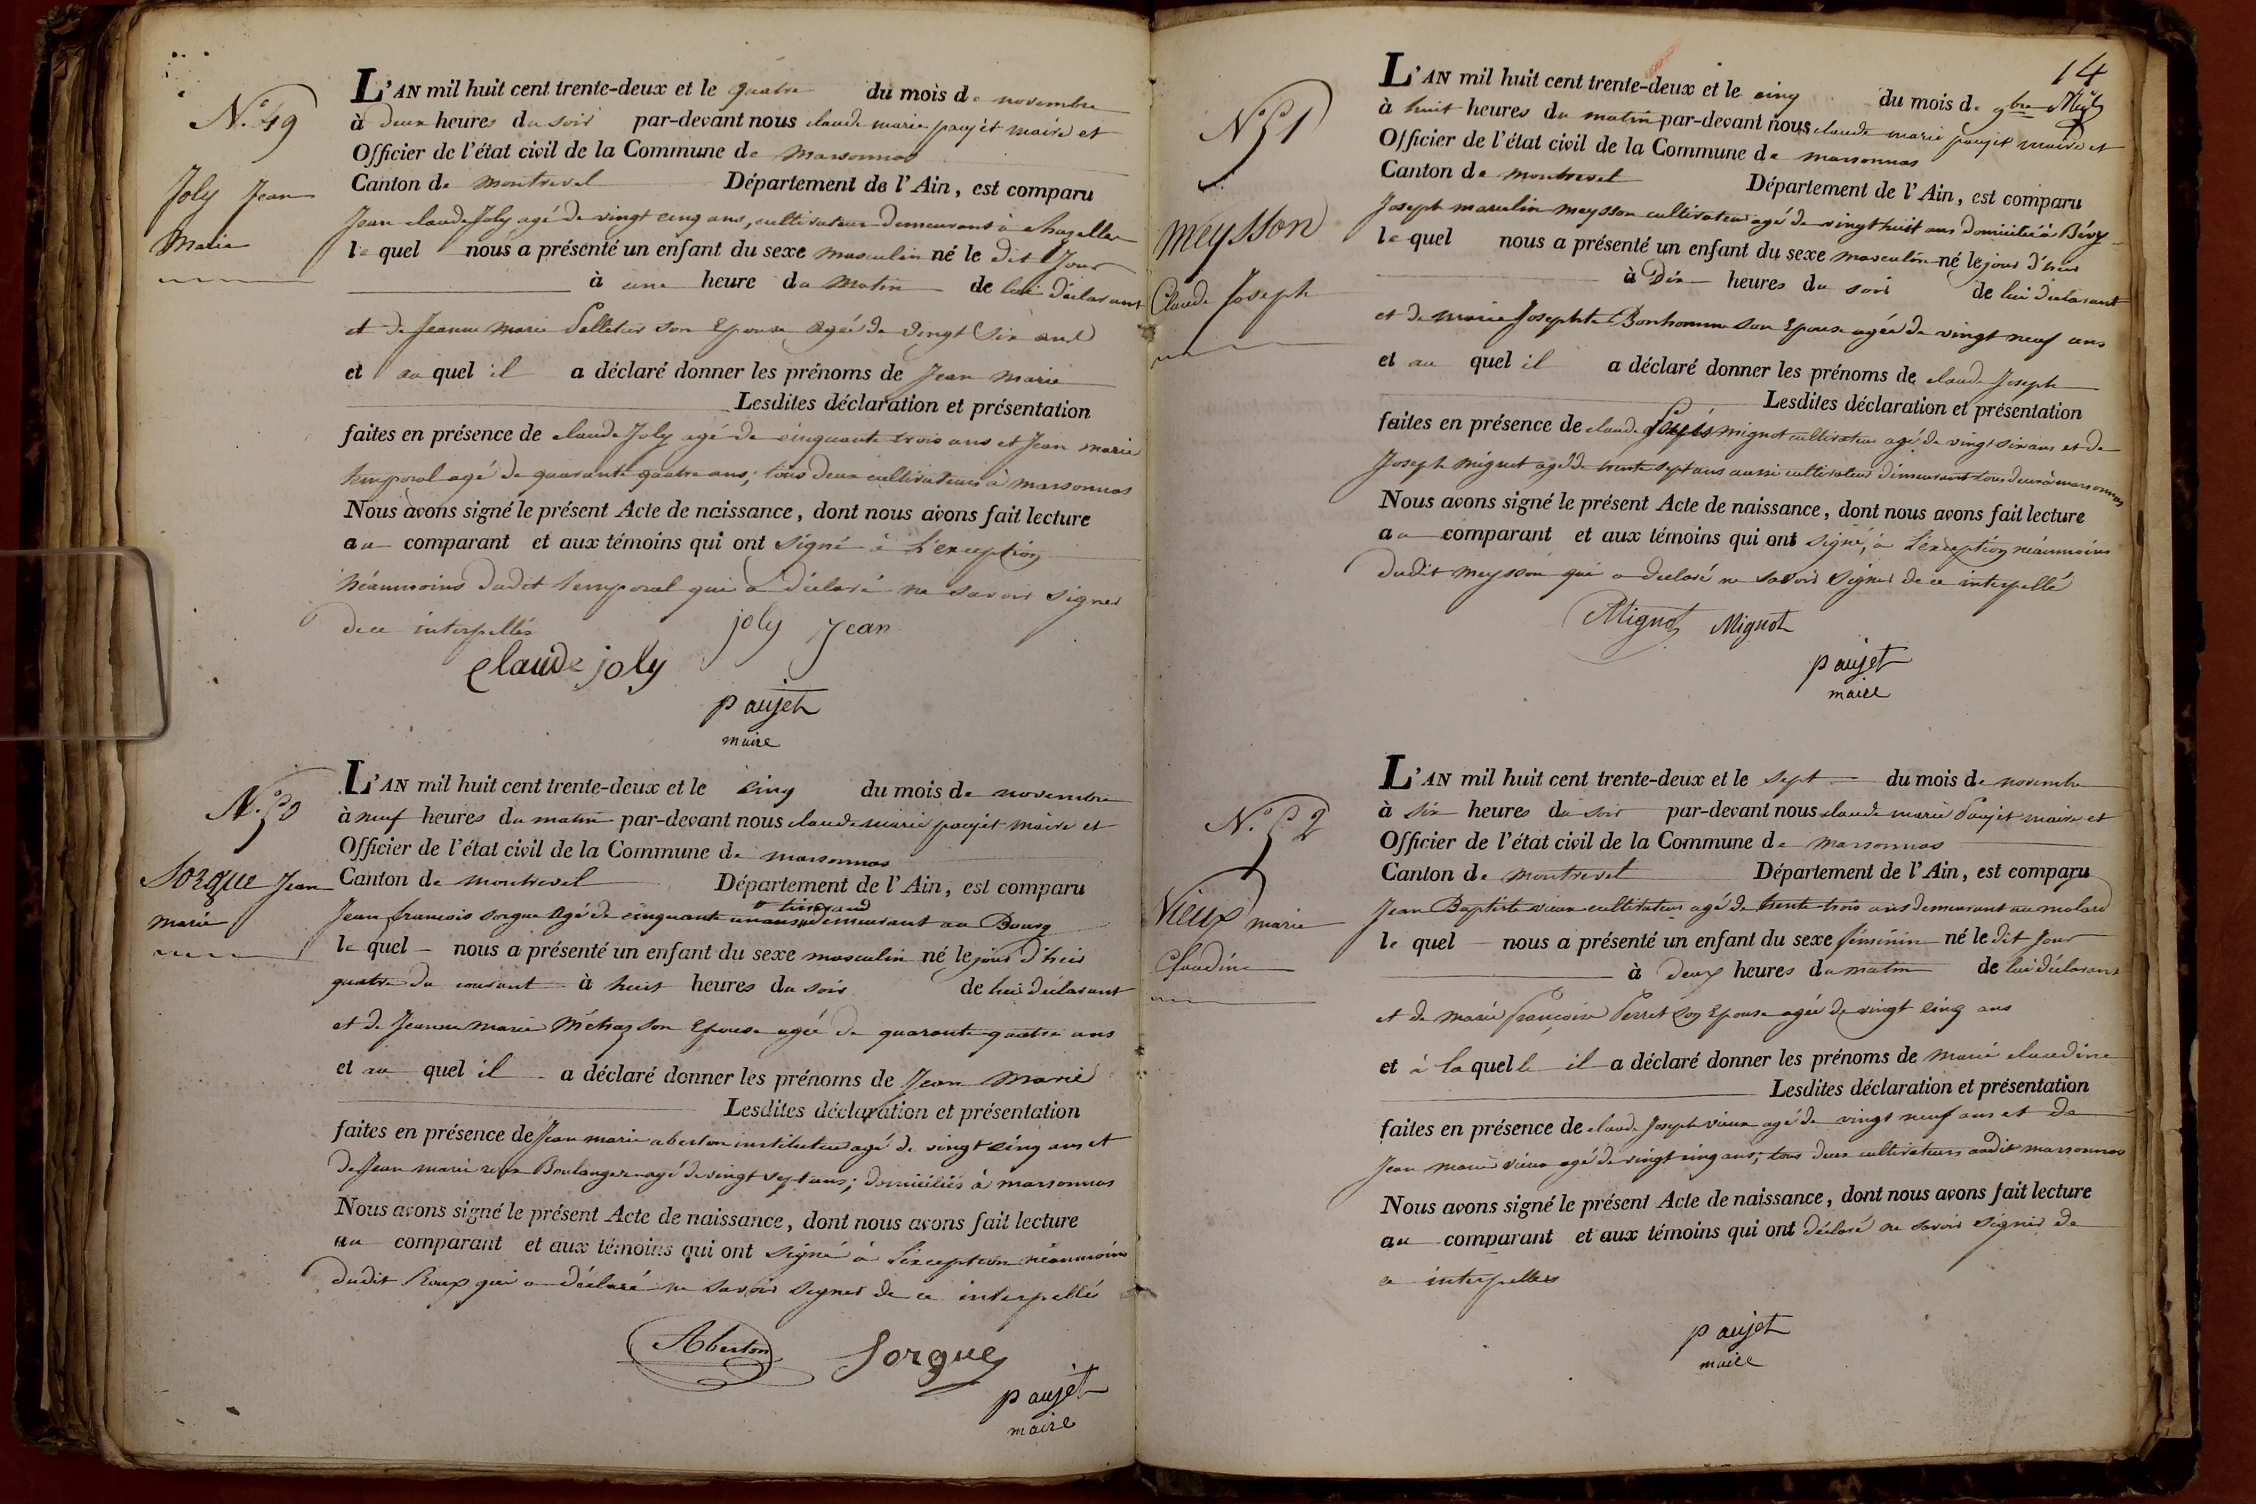 N.° 49
Joly Jean
Marie
L'AN mil huit cent trente-deux et le quatre du mois de novembre
à deux heures du soir par-devant nous claude marie paujet maire et
Officier de l'état civil de la Commune de marsonnas
Canton de montrevel Département de l'Ain, est comparu
Jean claude Joly agé de vingt cinq ans, cultivateur demeurant à chazelles
le quel nous a présenté un enfant du sexe masculin né le dit Jour
à une heure du matin de lui déclarant
et de Jeanne marie Pelletier son Epouse agée de vingt six ans
et au quel il a déclaré donner les prénoms de Jean marie
Lesdites déclaration et présentation
faites en présence de claude Joly agé de cinquante trois ans et Jean marie
temporal agé de quarante quatre ans; tous deux cultivateurs à marsonnas
Nous avons signé le présent Acte de naissance, dont nous avons fait lecture
au comparant et aux témoins qui ont signé à l'exception
néanmoins dudit temporal qui a déclaré ne savoir signer
de ce interpellés
joly jean
claude joly
paujet
maire
N.° 50
Sorgue Jean
marie
L'AN mil huit cent trente-deux et le cinq du mois de novembre
à neuf heures du matin par-devant nous claude marie paujet maire et
Officier de l'état civil de la Commune de marsonnas
Canton de montrevel Département de l'Ain, est comparu
Jean francois sorgue agé de cinquante un ans demeurant au Bourg
le quel nous a présenté un enfant du sexe masculin né le jour d'hier
quatre du courant à huit heures du soir de lui déclarant
et de Jeanne marie Métraz son Epouse agée de quarante quatre ans
et au quel il a déclaré donner les prénoms de Jean Marie
Lesdites déclaration et présentation
faites en présence de Jean marie aberton instituteur agé de vingt cinq ans et
de Jean marie roux Boulanger agé de vingt sept ans; domiciliés à marsonnas
Nous avons signé le présent Acte de naissance, dont nous avons fait lecture
au comparant et aux témoins qui ont signé à l'exception néanmoins
dudit Roux qui a déclaré ne savoir signer de ce interpellé
Aberton Sorgue
paujet
maire
14
N.° 51
Meysson
Claude Joseph
L'AN mil huit cent trente-deux et le cinq du mois de 9bre
à huit heures du matin par-devant nous claude marie paujet maire et
Officier de l'état civil de la Commune de marsonnas
Canton de montrevel Département de l'Ain, est comparu
Joseph marcelin meysson cultivateur agé de vingt huit ans domicilié à Bévy
le quel nous a présenté un enfant du sexe masculin né le jour d'hier
à Dix heures du soir de lui déclarant
et de marie Josephte Bonhomme son Epouse agée de vingt neuf ans
et au quel il a déclaré donner les prénoms de claude Joseph
Lesdites déclaration et présentation
faites en présence de claude mignot cultivateur agé de vingt six ans et de
Joseph mignot agé de trente sept ans aussi cultivateur demeurant tous deux à marsonnas
Nous avons signé le présent Acte de naissance, dont nous avons fait lecture
au comparant et aux témoins qui ont signé, à l'exception néanmoins
dudit meysson qui a déclaré ne savoir signer de ce interpellé
Mignot Mignot
paujet
maire
N.° 52
Vieux marie
Claudine
L'AN mil huit cent trente-deux et le sept du mois de novembre
à six heures du soir par-devant nous claude marie Paujet maire et
Officier de l'état civil de la Commune de marsonnas
Canton de montrevel Département de l'Ain, est comparu
Jean Baptiste vieux cultivateur agé de trente trois ans demeurant au molard
le quel nous a présenté un enfant du sexe féminin né le dit Jour
à deux heures du matin de lui déclarant
et de marie françoise Perret son Epouse agée de vingt cinq ans
et à la quelle il a déclaré donner les prénoms de marie claudine
Lesdites déclaration et présentation
faites en présence de claude Joseph vieux agé de vingt neuf ans et de
Jean marie vieux agé de vingt cinq ans; tous deux cultivateurs audit marsonnas
Nous avons signé le présent Acte de naissance, dont nous avons fait lecture
au comparant et aux témoins qui ont déclaré ne savoir signer de
ce interpellés
paujet
maire